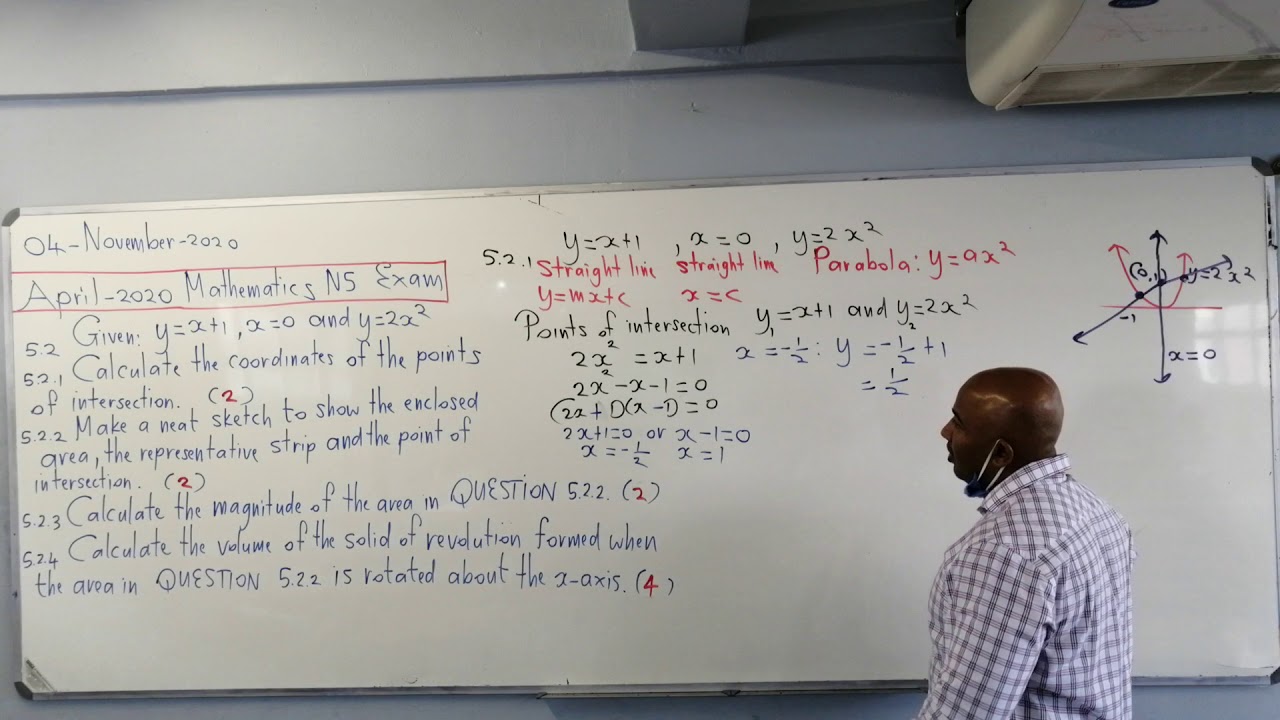 04-November-2020
April-2020 Mathematics N5 Exam
5.2 Given: y=x+1, x=0 and y=2x²
5.2.1 Calculate the coordinates of the points
of intersection. (2)
5.2.2 Make a neat sketch to show the enclosed
area, the representative strip and the point of
intersection. (2)
5.2.3 Calculate the magnitude of the area in QUESTION 5.2.2. (2)
5.2.4 Calculate the volume of the solid of revolution formed when
the area in QUESTION 5.2.2 is rotated about the x-axis. (4)
y=x+1 , x=0 , y=2x²
5.2.1 straight line straight line Parabola: y=ax²
y=mx+c x=c
Points of intersection y₁=x+1 and y₂=2x²
2x² = x+1
2x²-x-1=0
(2x+1)(x-1)=0
2x+1=0 or x-1=0
x=-1/2 x=1
x=-1/2: y=-1/2+1
=1/2
(0,1)
y=2x²
-1
x=0